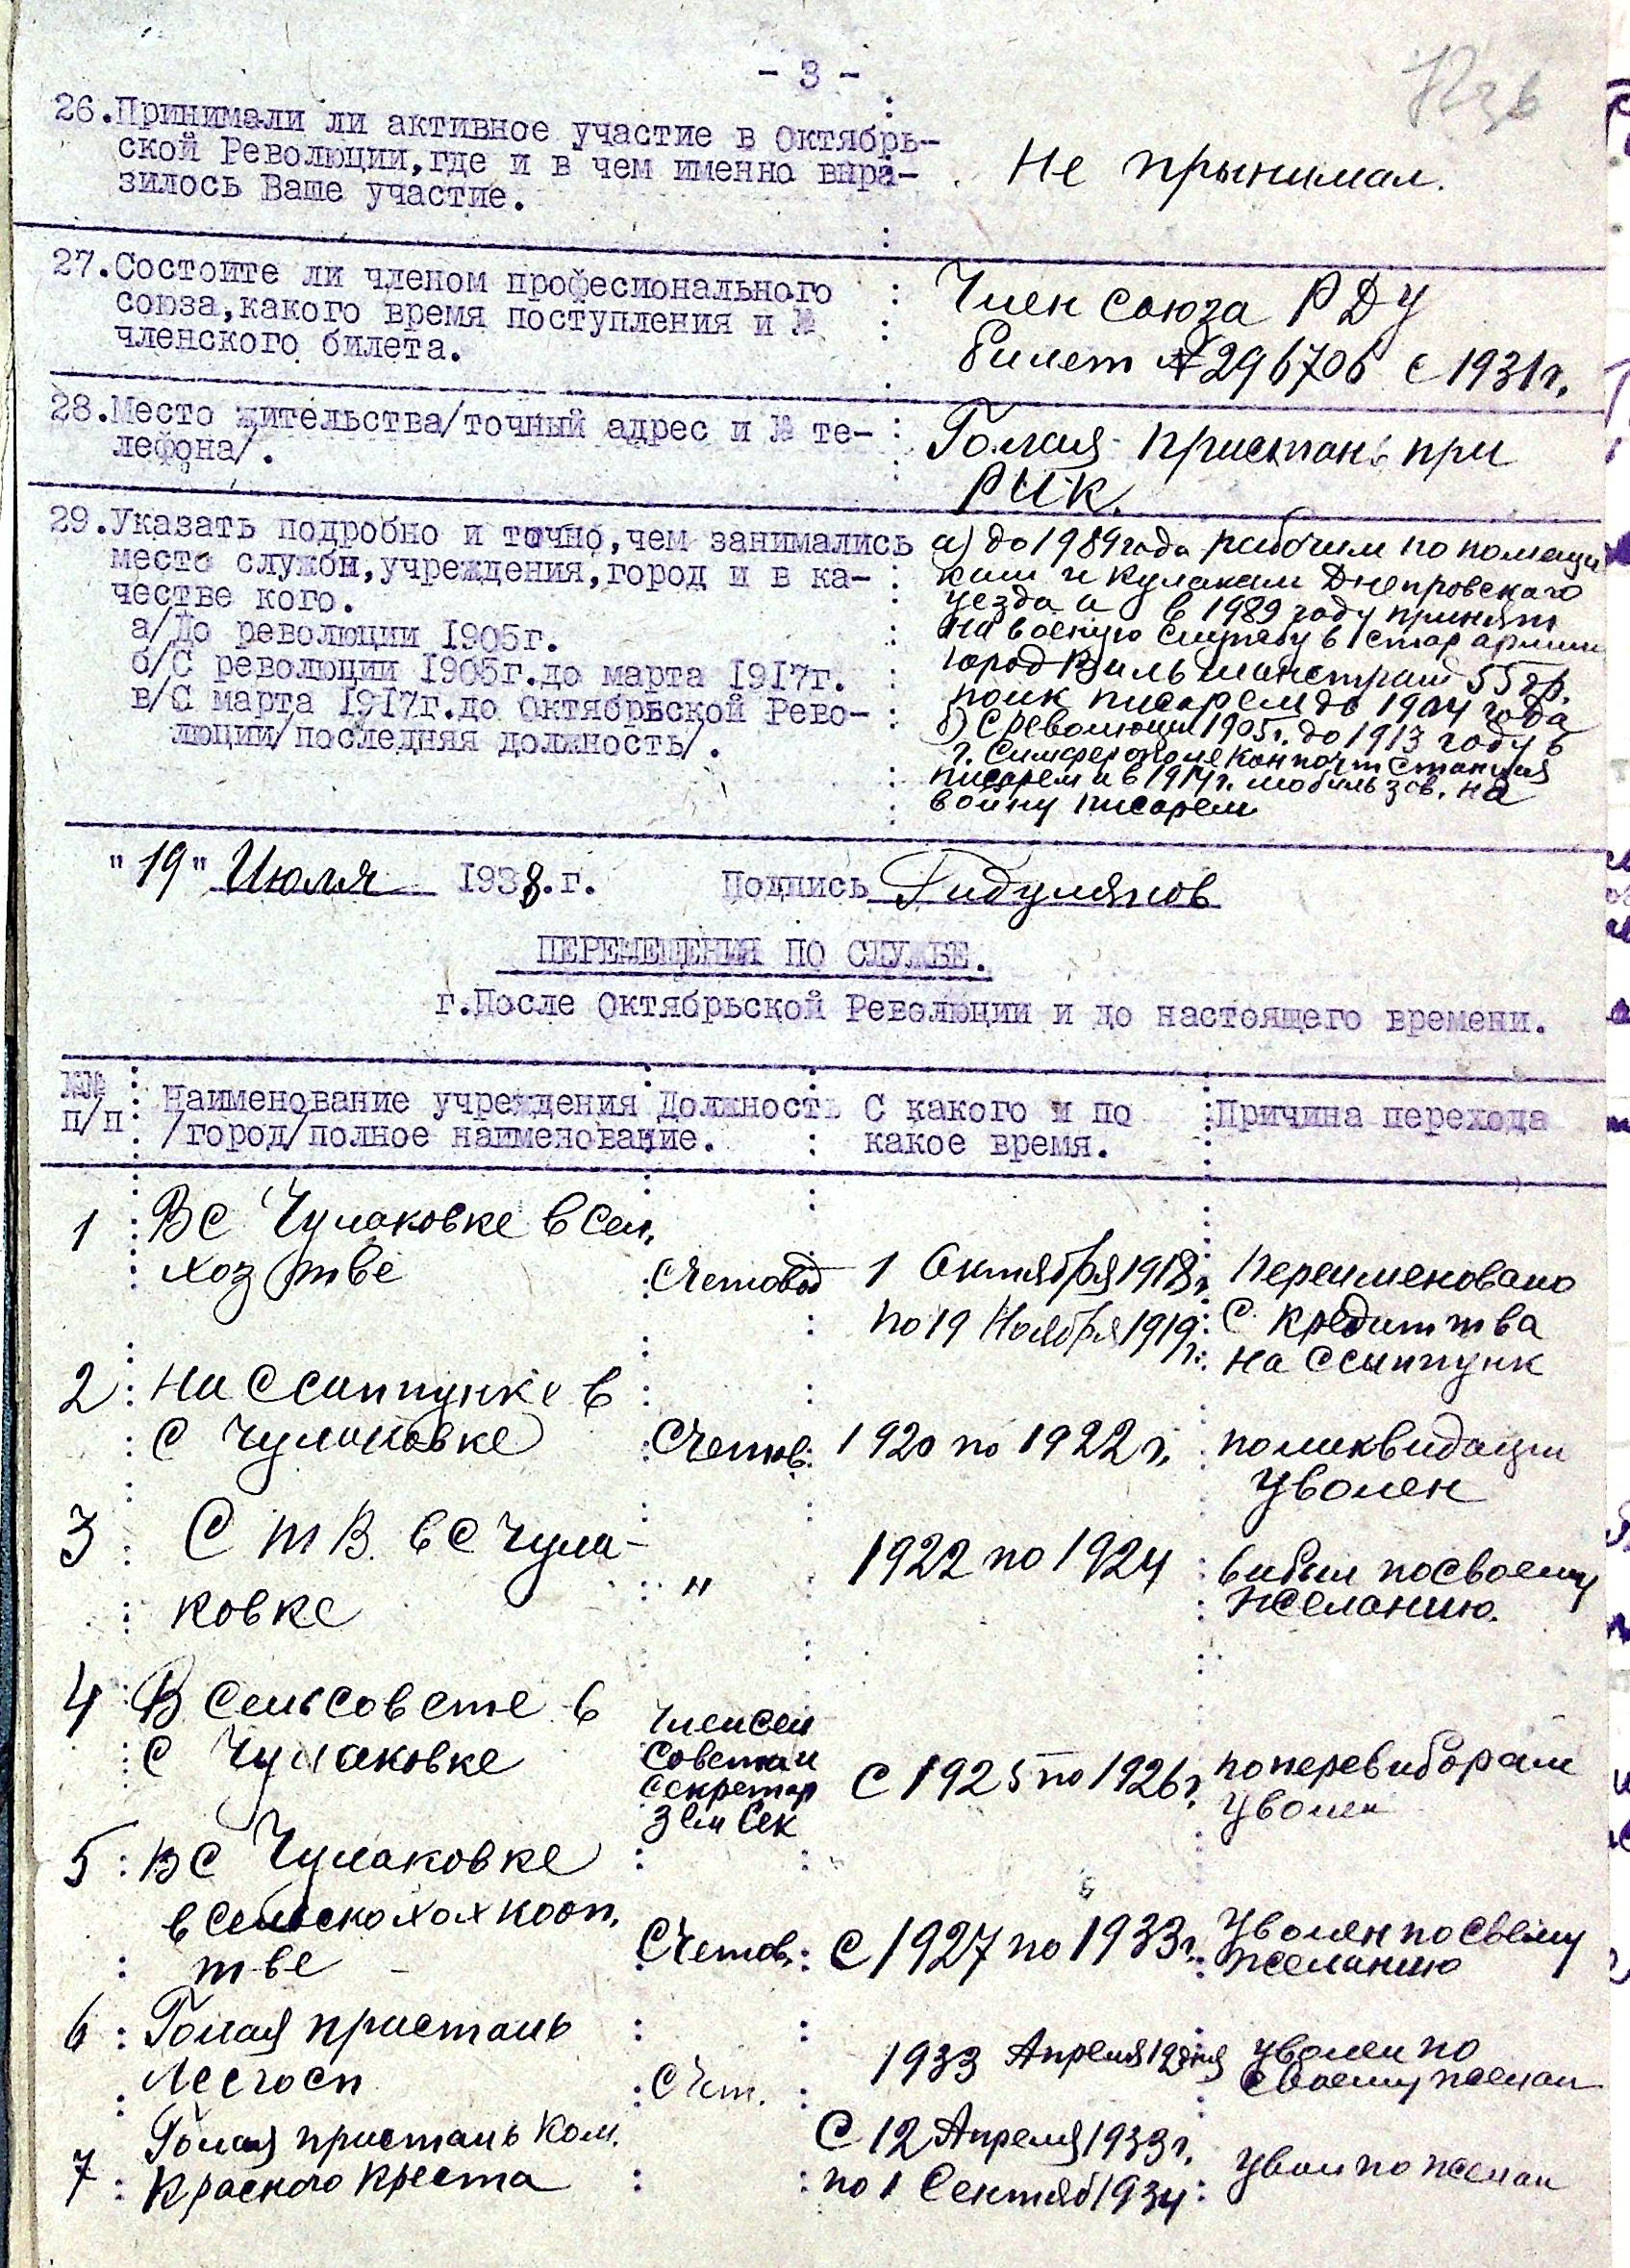 - 3 -
26.Принимали ли активное участие в Октябрь-
ской Революции,где и в чем именно выра-
зилось Ваше участие.
Не прынимал.
27.Состоите ли членом професионального
союза,какого время поступления и №
членского билета.
Член союза РДУ
билет № 296706 с 1931г.
28.Место жительства/точный адрес и № те-
лефона/.
Голая пристань при
РИК.
29.Указать подробно и точно,чем занимались
место службы,учреждения,город и в ка-
честве кого.
а/До революции 1905г.
б/С революции 1905г.до марта 1917г.
в/С марта 1917г.до Октябрьской Рево-
люции/последняя должность/.
а) до 1989 года рабочим по помещи
кам и кулакам Днепровского
уезда а в 1989 году принят
на военую службу в стар армии
город Вильманстранд 55
полк писарем до 1904 года
б) С революции 1905г. до 1913 году в
г. Симферополе кон почт станция
писарем и в 1914г. мобильзов. на
войну писарем
"19" Июля 1938.г. Подпись Гидулянов
ПЕРЕМЕЩЕНИЯ ПО СЛУЖБЕ.
г.После Октябрьской Революции и до настоящего времени.
№№ п/п
Наименование учреждения
/город/полное наименование.
Должность
С какого и по
какое время.
Причина перехода
1 В с Чулаковке в Сел.
хоз тве
Счетовод
1 Октября 1918г
по 19 Ноября 1919г.
Переименовано
С. кредит тва
на ссыппунк
2 На ссыппунке в
с Чулаковке
Счетов.
1920 по 1922 г.
поликвидации
уволен
3 С т В. в с Чула-
ковке
"
1922 по 1924
вибыл посвоему
желанию.
4 В сельсовете в
с Чулаковке
Член сел
совета и
секретар
Зем Сек
с 1925 по 1926г.
поперевиборам
уволен
5 В с Чулаковке
в Сельскохохкооп.
тве
Счетов.
с 1927 по 1933г.
Уволен посвему
желанию
6 Голая пристань
Лесгосп
Счет.
1933 Апреля 12 дня
уволен по
своему желан
7 Голая пристань Ком.
Красного Креста
С 12 Апреля 1933г.
по 1 Сентяб 1934
Увол по желан